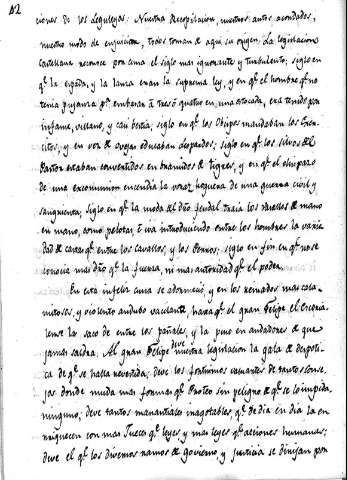 12
ciones de los Leguleyos: Nuestra Recopilacion, nuestros autos acordados,
nuestro modo de enjuiciar, todos toman de aqui su origen. La legislacion
Castellana reconoce por cuna el siglo mas ignorante y turbulento, siglo en
q.e la espada, y la lanza eran la suprema ley, y en q.e el hombre q.e no
tenia pujanza p.a embasar á tres ó quatro en una estocada, era tenido por
infame, villano, y casi bestia; siglo en q.e los Obispos mandaban los Exer-
citos, y en vez de ovejas educaban Leopardos; siglo en q.e los silvos del
Pastor estaban convertidos en bramidos de tigres, y en q.e el chisparo
de una excomunion encendia la voraz hoguera de una guerra civil y
sangrienta; siglo en q.e la moda del dro feudal traia los vasallos de mano
en mano, como pelotas, é iva introduciendo entre los hombres la varie
dad de castas q.e entre los cavallos, y los Perros; siglo en fin en q.e no se
conocia mas dro q.e la fuerza, ni mas autoridad q.e el poder.
En esta infeliz cuna se adormeció, y en los reinados mas cala-
mitosos, y violento anduvo vacilante, hasta q.e el gran Felipe el Escoria-
lense la saco de entre los pañales, y la puso en andadores de que
jamas saldra. Al gran Felipe deve nuestra legislacion la gala de despoti-
ca de q.e se halla revestida; deve los fortisimos vacantes de tantos conse-
jos donde muda mas formas q.e Proteo sin peligro de q.e se lo impida
ninguno; deve tantos manantiales inagotables, q.e de dia en dia la en
riquecen con mas Jueces q.e leyes y mas leyes q.e acciones humanas;
deve el q.e los diversos ramos de Govierno y Justicia se dirijan por